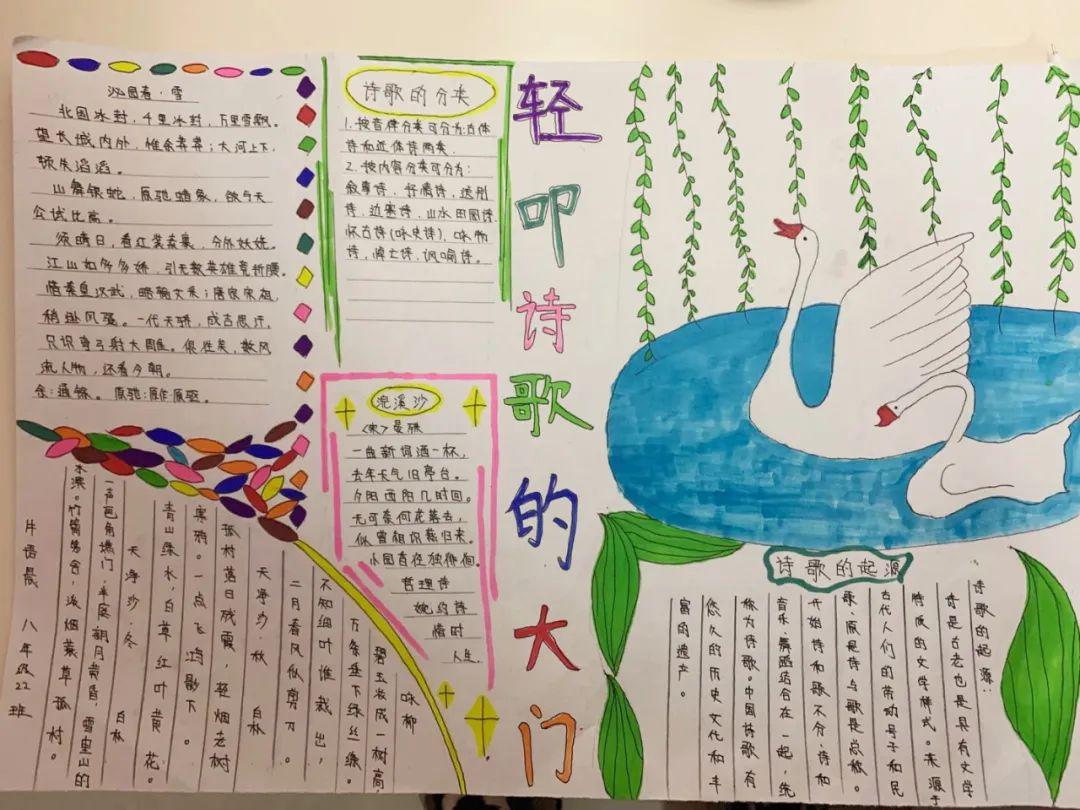 沁园春·雪
北国冰封,千里冰封,万里雪飘。
望长城内外,惟余莽莽;大河上下,
顿失滔滔。
山舞银蛇,原驰蜡象,欲与天
公试比高。
须晴日,看红装素裹,分外妖娆。
江山如此多娇,引无数英雄竞折腰。
惜秦皇汉武,略输文采;唐宗宋祖,
稍逊风骚。一代天骄,成吉思汗,
只识弯弓射大雕。俱往矣,数风
流人物,还看今朝。
诗歌的分类
1.按音律分类可分为古体
诗和近体诗两类.
2.按内容分类可分为:
叙事诗,抒情诗,送别
诗,边塞诗,山水田园诗.
怀古诗(咏史诗),咏物
诗,悼亡诗,讽喻诗。
浣溪沙
<宋>晏殊
一曲新词酒一杯,
去年天气旧亭台。
夕阳西阳几时回。
无可奈何花落去,
似曾相识燕归来。
小园香径独徘徊。
哲理诗
婉约诗
惜时
人生.
轻叩诗歌的大门
咏柳
碧玉妆成一树高,
万条垂下绿丝绦。
不知细叶谁裁出,
二月春风似剪刀。
天净沙 秋 白朴
孤村落日残霞,轻烟老树
寒鸦。一点飞鸿影下。
青山绿水,白草红叶黄花。
天净沙·冬 白朴
一声画角谯门,半庭朔月黄昏,雪里山的
水滨。竹篱茅舍,淡烟蓑草孤村。
八年级22班
诗歌的起源
诗歌的起源:
诗是古老也是具有文学
特质的文学样式。来源于
古代人们的劳动号子和民
歌,原是诗与歌是总称。
开始诗和歌不分,诗和
音乐、舞蹈结合在一起,统
称为诗歌。中国诗歌有
悠久的历史文化和丰
富的遗产。